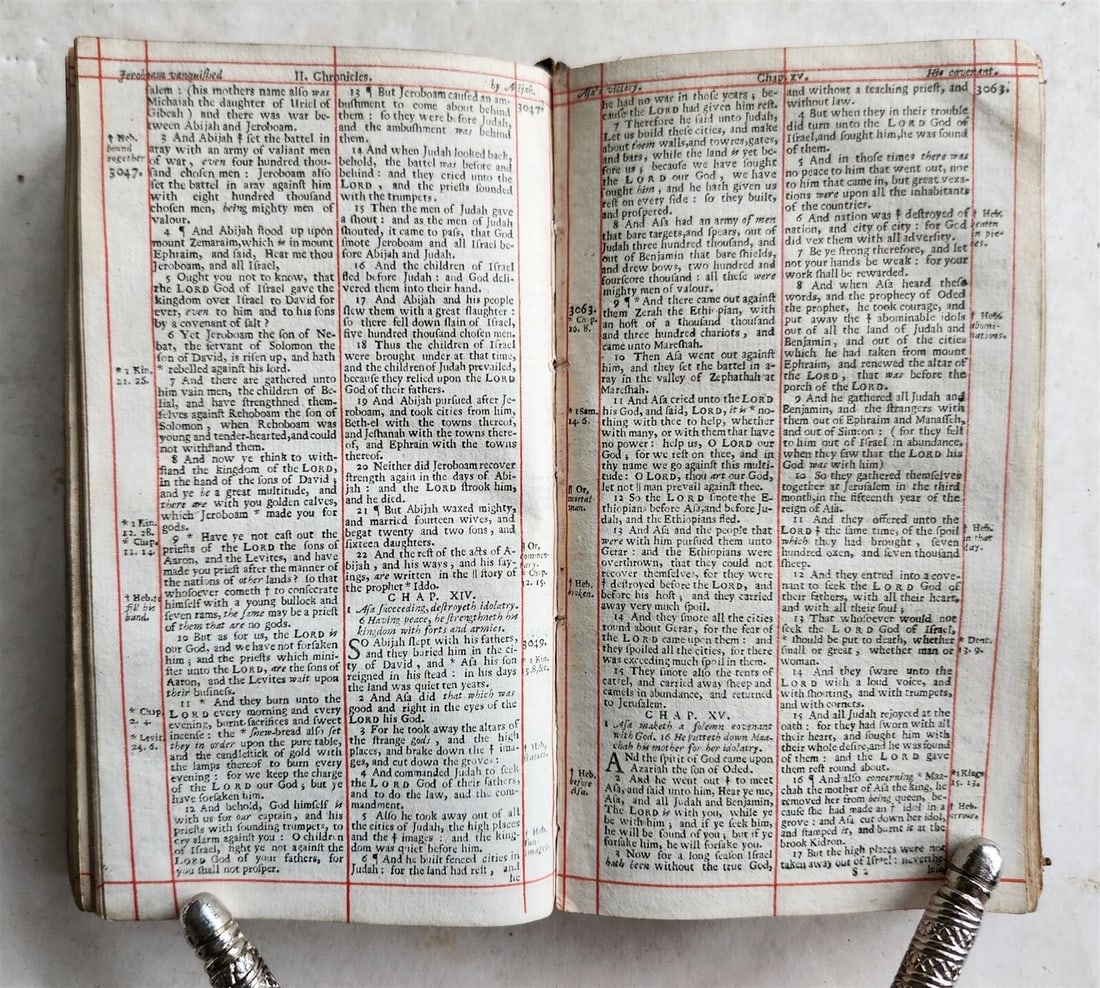 Jeroboam vanquiſhed
II. Chronicles.
by Abijah.
ſalem : (his mothers name alſo was
Michaiah the daughter of Uriel of
Gibeah ) and there was war be-
tween Abijah and Jeroboam.
3 And Abijah † ſet the battel in
aray with an army of valiant men
of war , even four hundred thou-
ſand choſen men : Jeroboam alſo
ſet the battel in aray againſt him
with eight hundred thouſand
choſen men, being mighty men of
valour.
4 ¶ And Abijah ſtood up upon
mount Zemaraim, which is in mount
Ephraim, and ſaid, Hear me thou
Jeroboam, and all Iſrael,
5 Ought you not to know, that
the LORD God of Iſrael gave the
kingdom over Iſrael to David for
ever, even to him and to his ſons
by a covenant of ſalt ?
6 Yet Jeroboam the ſon of Ne-
bat, the ſervant of Solomon the
ſon of David, is riſen up, and hath
* rebelled againſt his lord.
7 And there are gathered unto
him vain men, the children of Be-
lial, and have ſtrengthned them-
ſelves againſt Rehoboam the ſon of
Solomon , when Rehoboam was
young and tender-hearted, and could
not withſtand them.
8 And now ye think to with-
ſtand the kingdom of the LORD,
in the hand of the ſons of David ;
and ye be a great multitude, and
there are with you golden calves,
which Jeroboam * made you for
gods.
9 * Have ye not caſt out the
prieſts of the LORD the ſons of
Aaron, and the Levites, and have
made you prieſt after the manner of
the nations of other lands ? ſo that
whoſoever cometh † to conſecrate
himſelf with a young bullock and
ſeven rams, the ſame may be a prieſt
of them that are no gods.
10 But as for us, the LORD is
our God, and we have not forſaken
him ; and the prieſts which mini-
ſter unto the LORD, are the ſons of
Aaron, and the Levites wait upon
their buſineſs.
11 * And they burn unto the
LORD every morning and every
evening, burnt-ſacrifices and ſweet
incenſe : the * ſhew-bread alſo ſet
they in order upon the pure table,
and the candleſtick of gold with
the lamps thereof to burn every
evening : for we keep the charge
of the LORD our God ; but ye
have forſaken him.
12 And behold, God himſelf is
with us for our captain , and his
prieſts with ſounding trumpets, to
cry alarm againſt you : O children
of Iſrael, fight ye not againſt the
LORD God of your fathers, for
you ſhall not proſper.
† Heb.
bound
together
3047.
* 1 Kin.
11. 26.
* 1 Kin.
12. 28.
* Chap.
11. 14.
† Heb. to
fill his
hand.
* Chap.
2. 4.
* Levit.
24. 6.
13 ¶ But Jeroboam cauſed an am-
buſhment to come about behind
them : ſo they were before Judah,
and the ambuſhment was behind
them.
14 And when Judah looked back,
behold, the battel was before and
behind : and they cried unto the
LORD , and the prieſts ſounded
with the trumpets.
15 Then the men of Judah gave
a ſhout : and as the men of Judah
ſhouted, it came to paſs, that God
ſmote Jeroboam and all Iſrael be-
fore Abijah and Judah.
16 And the children of Iſrael
fled before Judah : and God deli-
vered them into their hand.
17 And Abijah and his people
ſlew them with a great ſlaughter :
ſo there fell down ſlain of Iſrael,
five hundred thouſand choſen men.
18 Thus the children of Iſrael
were brought under at that time,
and the children of Judah prevailed,
becauſe they relied upon the LORD
God of their fathers.
19 And Abijah purſued after Je-
roboam, and took cities from him,
Beth-el with the towns thereof,
and Jeſhanah with the towns there-
of, and Ephraim with the towns
thereof.
20 Neither did Jeroboam recover
ſtrength again in the days of Abi-
jah : and the LORD ſtrook him,
and he died.
21 ¶ But Abijah waxed mighty,
and married fourteen wives, and
begat twenty and two ſons , and
ſixteen daughters.
22 And the reſt of the acts of A-
bijah , and his ways , and his ſay-
ings, are written in the || ſtory of
the prophet * Iddo.
CHAP. XIV.
1 Aſa ſucceeding, deſtroyeth idolatry.
6 Having peace, he ſtrengtheneth his
kingdom with forts and armies.
SO Abijah ſlept with his fathers,
and they buried him in the ci-
ty of David , and * Aſa his ſon
reigned in his ſtead : in his days
the land was quiet ten years.
2 And Aſa did that which was
good and right in the eyes of the
LORD his God.
3 For he took away the altars of
the ſtrange gods , and the high
places, and brake down the † ima-
ges, and cut down the groves :
4 And commanded Judah to ſeek
the LORD God of their fathers,
and to do the law, and the com-
mandment.
5 Alſo he took away out of all
the cities of Judah, the high places
and the † images : and the king-
dom was quiet before him.
6 ¶ And he built fenced cities in
Judah : for the land had reſt , and
he
3047.
|| Or,
* Chap.
12. 15.
3049.
* 1 Kin.
† Heb.
† Heb.
Aſa's victory.
Chap. xv.
His covenant.
he had no war in thoſe years ; be-
cauſe the LORD had given him reſt.
7 Therefore he ſaid unto Judah,
Let us build theſe cities, and make
about them walls, and towres, gates,
and bars, while the land is yet be-
fore us ; becauſe we have ſought
the LORD our God , we have
ſought him, and he hath given us
reſt on every ſide : ſo they built,
and proſpered.
8 And Aſa had an army of men
that bare targets, and ſpears, out of
Judah three hundred thouſand, and
out of Benjamin that bare ſhields,
and drew bows, two hundred and
fourſcore thouſand : all theſe were
mighty men of valour.
9 ¶ * And there came out againſt
them Zerah the Ethiopian, with
an hoſt of a thouſand thouſand
and three hundred chariots, and
came unto Mareſhah.
10 Then Aſa went out againſt
him, and they ſet the battel in a-
ray in the valley of Zephathah at
Mareſhah.
11 And Aſa cried unto the LORD
his God, and ſaid, LORD, it is * no-
thing with thee to help, whether
with many, or with them that have
no power : help us, O LORD our
God ; for we reſt on thee, and in
thy name we go againſt this multi-
tude : O LORD, thou art our God,
let not || man prevail againſt thee.
12 So the LORD ſmote the E-
thiopians before Aſa, and before Ju-
dah, and the Ethiopians fled.
13 And Aſa and the people that
were with him purſued them unto
Gerar : and the Ethiopians were
overthrown, that they could not
recover themſelves, for they were
† deſtroyed before the LORD, and
before his hoſt ; and they carried
away very much ſpoil.
14 And they ſmote all the cities
round about Gerar, for the fear of
the LORD came upon them : and
they ſpoiled all the cities, for there
was exceeding much ſpoil in them.
15 They ſmote alſo the tents of
cattel, and carried away ſheep and
camels in abundance, and returned
to Jeruſalem.
CHAP. XV.
1 Aſa maketh a ſolemn covenant
with God. 16 He putteth down Maa-
chah his mother for her idolatry.
ANd the ſpirit of God came upon
Azariah the ſon of Oded.
2 And he went out † to meet
Aſa, and ſaid unto him, Hear ye me,
Aſa, and all Judah and Benjamin,
The LORD is with you, while ye
be with him ; and if ye ſeek him,
he will be found of you ; but if ye
forſake him, he will forſake you.
3 Now for a long ſeaſon Iſrael
hath been without the true God,
3063.
* Chap.
16. 8.
* 1 Sam.
14. 6.
|| Or,
mortal
man.
† Heb.
broken.
† Heb.
before
Aſa.
and without a teaching prieſt, and
without law.
4 But when they in their trouble
did turn unto the LORD God of
Iſrael, and ſought him, he was found
of them.
5 And in thoſe times there was
no peace to him that went out, nor
to him that came in, but great vexa-
tions were upon all the inhabitants
of the countries.
6 And nation was † deſtroyed of
nation, and city of city : for God
did vex them with all adverſity.
7 Be ye ſtrong therefore, and let
not your hands be weak : for your
work ſhall be rewarded.
8 And when Aſa heard theſe
words, and the prophecy of Oded
the prophet, he took courage, and
put away the † abominable idols
out of all the land of Judah and
Benjamin, and out of the cities
which he had taken from mount
Ephraim, and renewed the altar of
the LORD, that was before the
porch of the LORD.
9 And he gathered all Judah and
Benjamin, and the ſtrangers with
them out of Ephraim and Manaſſeh,
and out of Simeon : ( for they fell
to him out of Iſrael in abundance,
when they ſaw that the LORD his
God was with him)
10 So they gathered themſelves
together at Jeruſalem in the third
month, in the fifteenth year of the
reign of Aſa.
11 And they offered unto the
LORD † the ſame time, of the ſpoil
which they had brought , ſeven
hundred oxen, and ſeven thouſand
ſheep.
12 And they entred into a cove-
nant to ſeek the LORD God of
their fathers, with all their heart,
and with all their ſoul ;
13 That whoſoever would not
ſeek the LORD God of Iſrael,
* ſhould be put to death, whether
ſmall or great , whether man or
woman.
14 And they ſware unto the
LORD with a loud voice, and
with ſhouting, and with trumpets,
and with cornets.
15 And all Judah rejoyced at the
oath : for they had ſworn with all
their heart, and ſought him with
their whole deſire, and he was found
of them : and the LORD gave
them reſt round about.
16 ¶ And alſo concerning * Maa-
chah the mother of Aſa the king, he
removed her from being queen, be-
cauſe ſhe had made an † idol in a
grove : and Aſa cut down her idol,
and ſtamped it, and burnt it at the
brook Kidron.
17 But the high places were not
taken away out of Iſrael : neverthe-
S 2
leſs
3063.
† Heb.
beaten
in pie-
ces.
† Heb.
abomi-
nations.
† Heb.
in that
day.
* Deut.
13. 9.
* 1 Kings
15. 13.
† Heb.